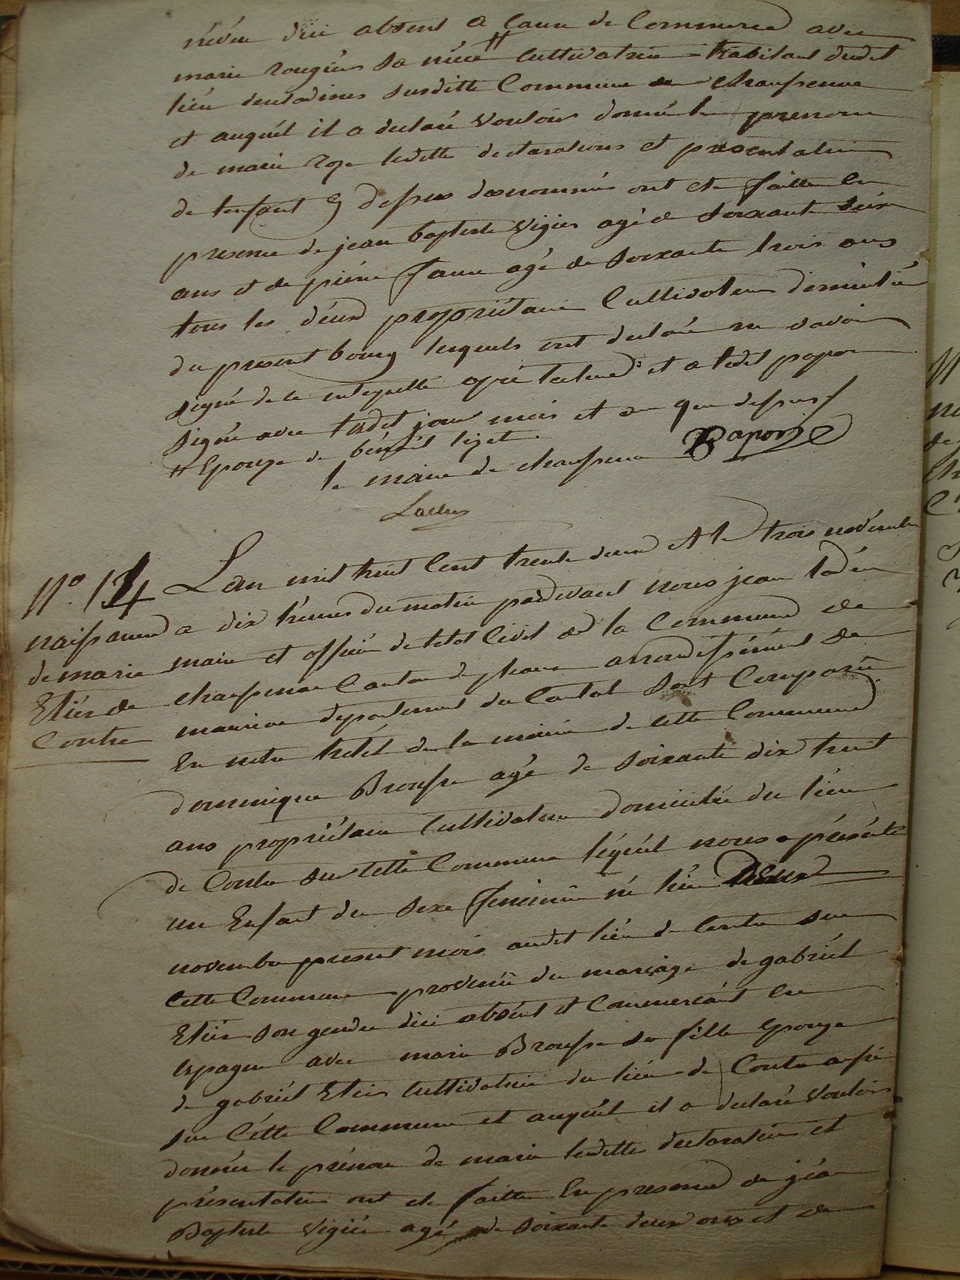 névéu d'ici absent a Cause de Commerce avec
marie rougiés sa niéce # Cultivatrice habitant dudit
liéu susditte Commune de chaussenac
et auquél il a declaré vouloir donné le prenom
de marie roze lesditte declarations et presentation
de l'enfant dessus denommé ont eté faitte en
presence de jean baptiste vigiés agé de soixante deux
ans et de piérre faure agé de soixante trois ans
tous les déux propriétaire Cultivateur domicilié
du present bourg lesquels ont declaré ne savoir
signé de ce intepellé apré lecture et a ledit papon
signé avec ledit jour mois et an que dessus
# Epouze de lizet
le maire de chaussenac Papon
N.º 14
naissance
de marie
Eliés de
Contre
Lan mil huit Cent trente deux et le trois novémbre
a dix héures du matin pardevant nous jean
maire et officié de letat Civil de la Commune de
chaussenac Canton de pleaux arrondissément de
mauriac departement du Cantal sont Comparu
En notre hotél de la mairie de cette Commune
dominique Brousse agé de soixante dix huit
ans propriétaire Cultivateur domicilié du liéu
de Contre sur cette Commune léquél nous a présenté
un Enfant du sexe feminin né le deux
novembre present mois audit liéu de Contre sur
Cette Commune provenu du mariage de gabriél
Eliés son gendre d'ici absént et Commercant en
Espagne avec marie Brousse sa fille epouze
de gabriél Eliés Cultivatrice du liéu de Contre
sur Cétte Commune et auquél il a declaré vouloir
donnér le prénom de marie lesditte declaration et
présentation ont eté faitte En presence de jéan
Baptiste vigiés agé de soixante deux ans et de